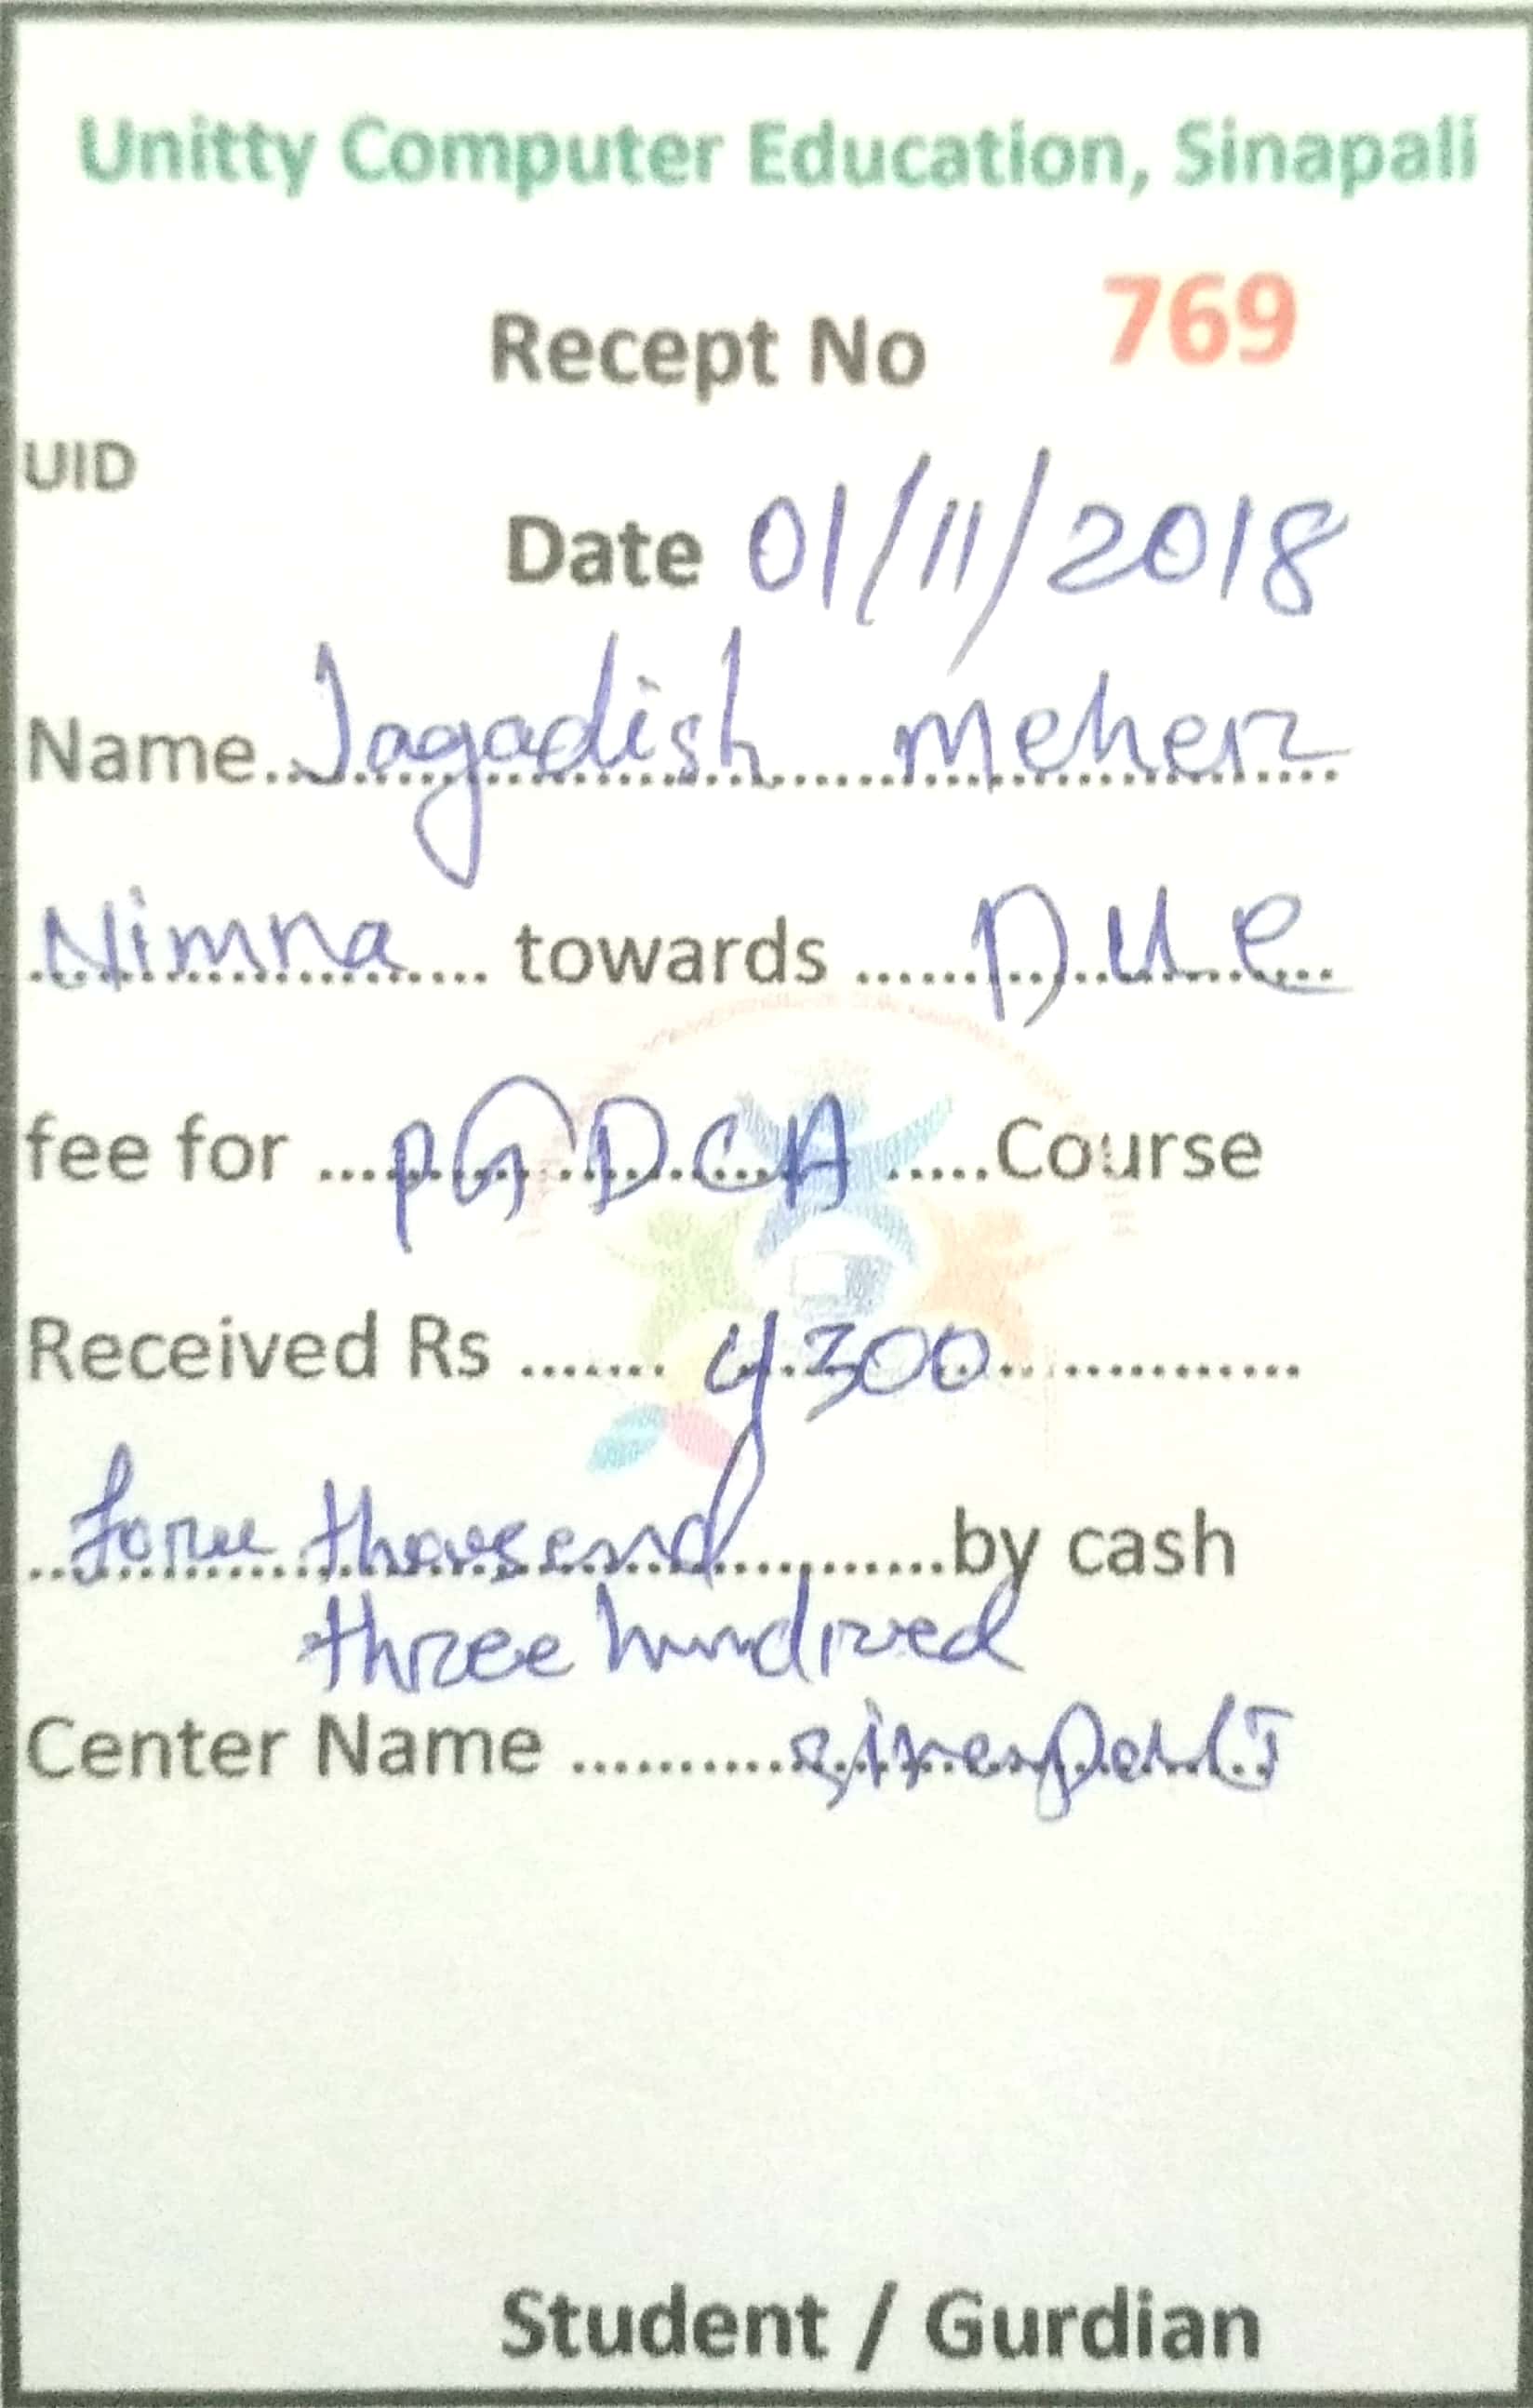 Unitty Computer Education, Sinapali
Recept No 769
UID
Date 01/11/2018
Name Jagadish Meher
Nimna towards Due
fee for PGDCA Course
Received Rs 4300
foru thousend by cash
three hundred
Center Name sinapali
Student / Gurdian